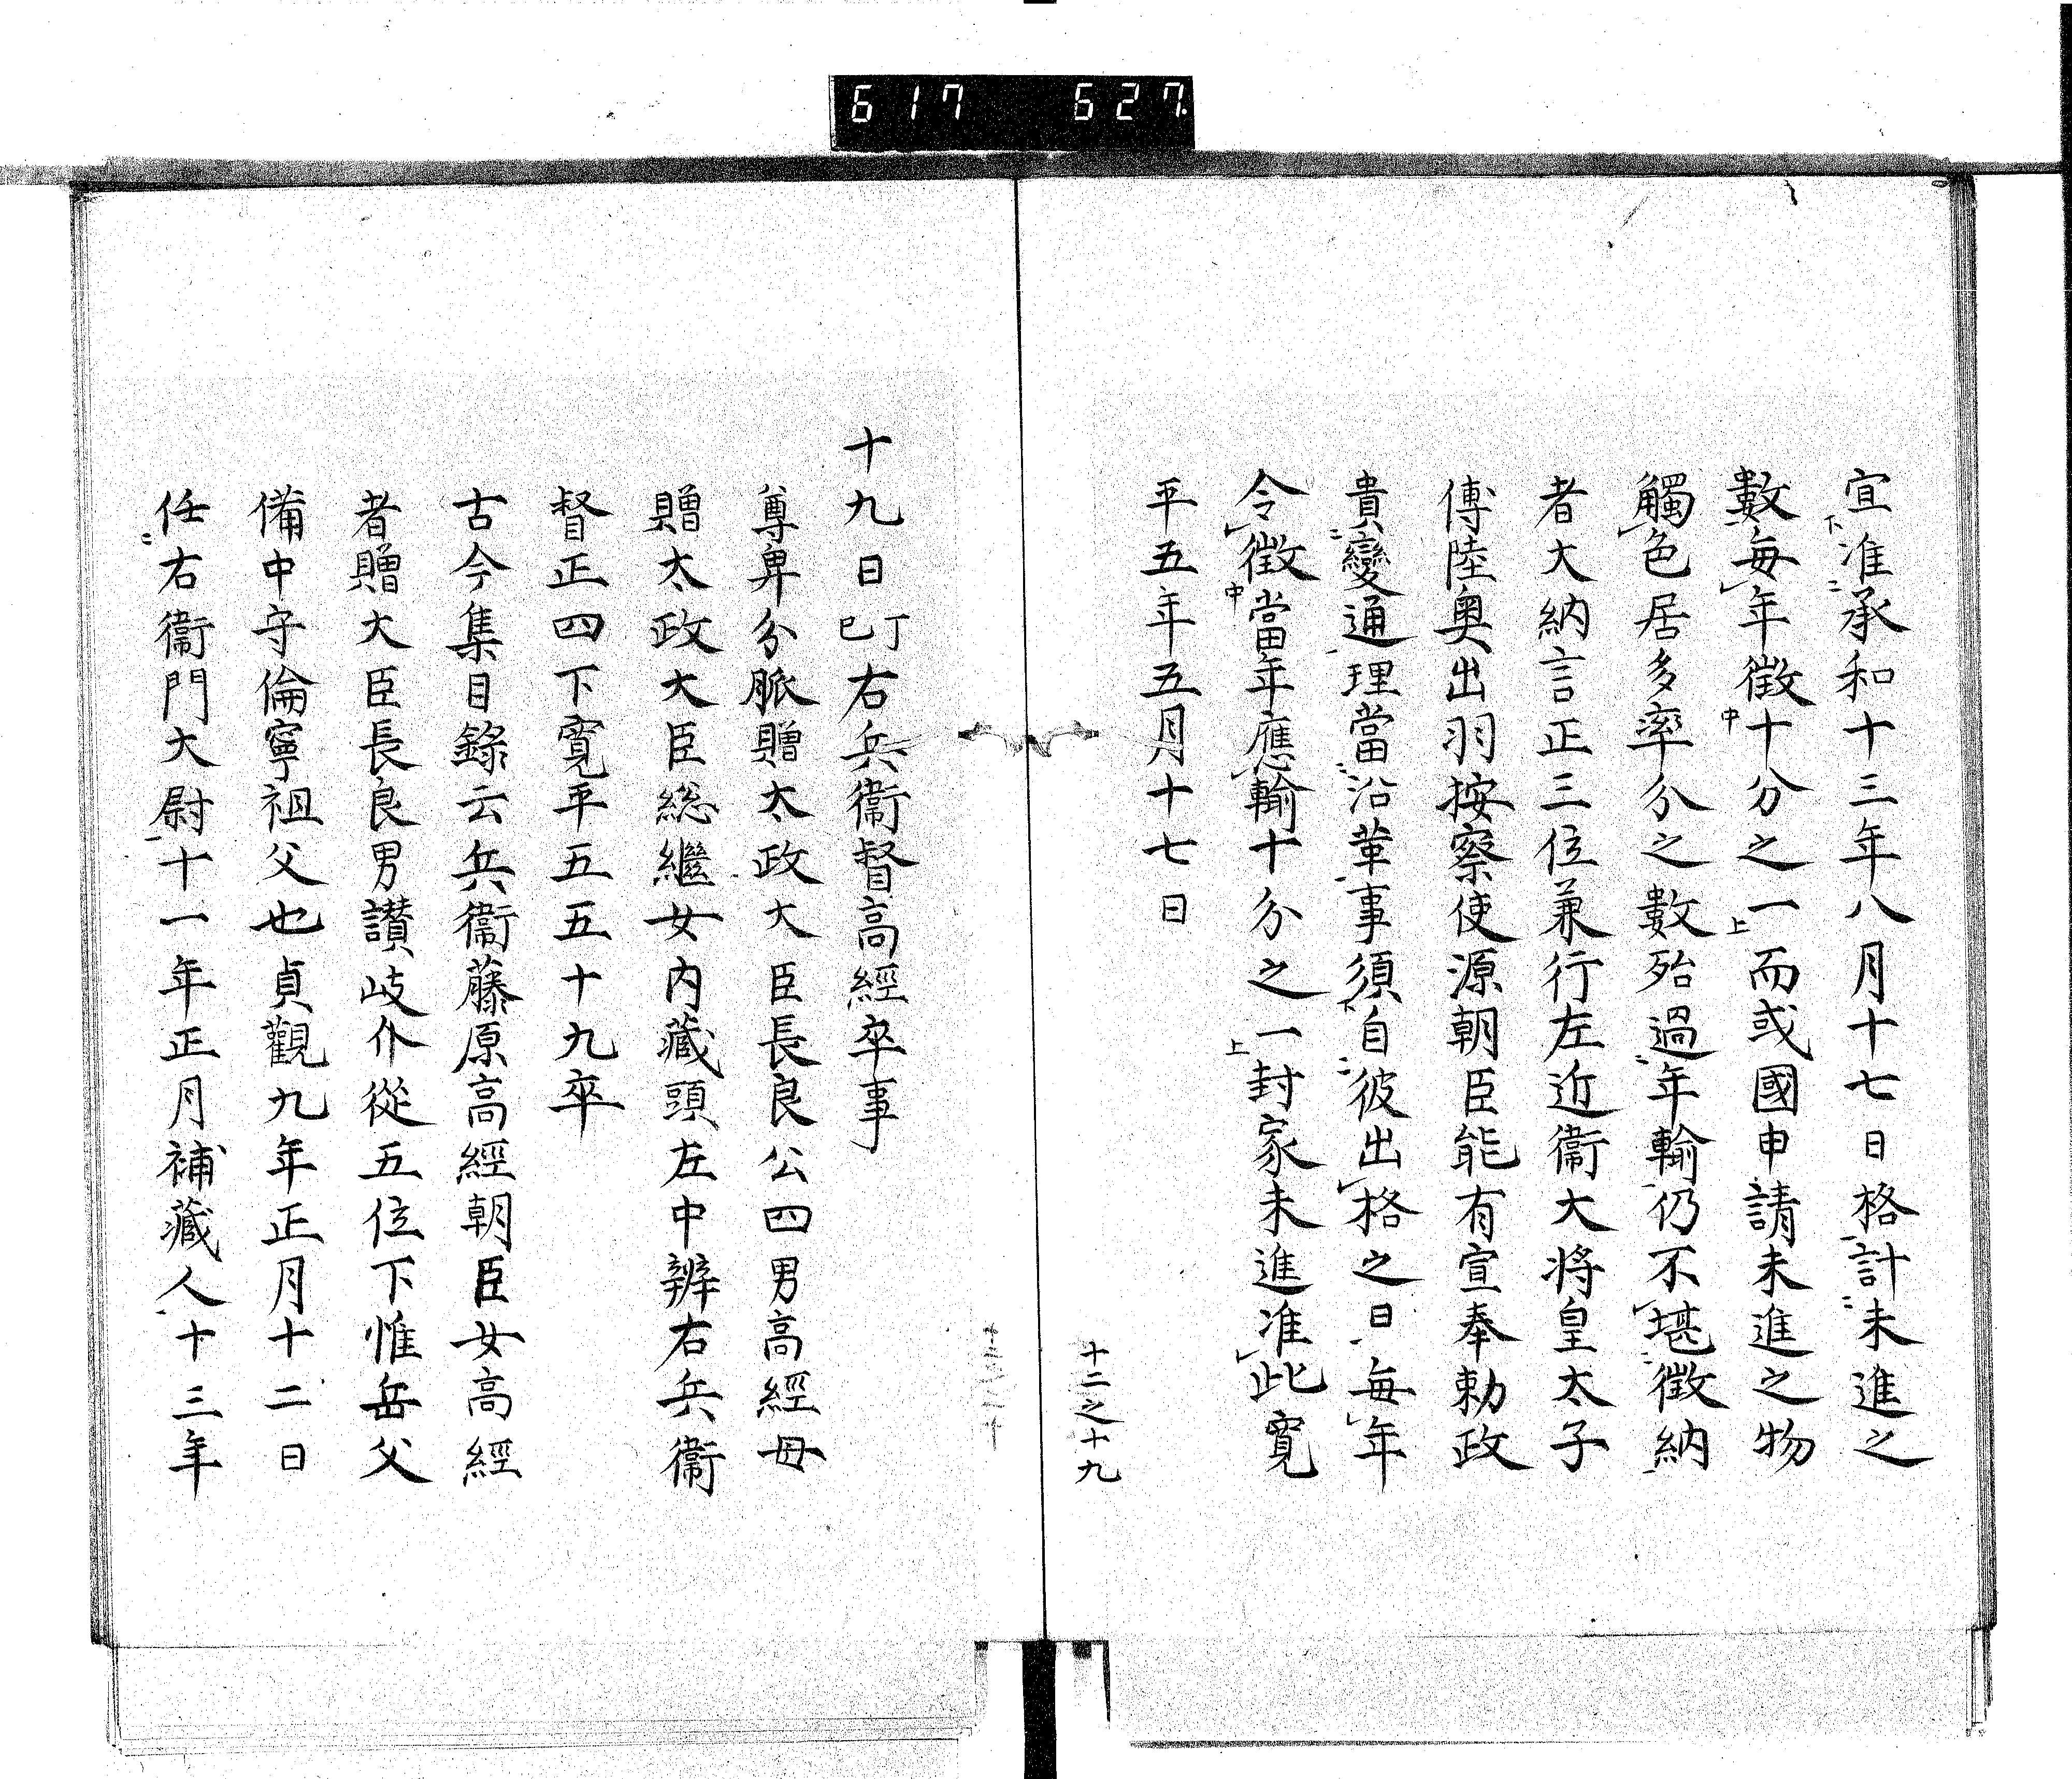 617 627
宣准承和十三年八月十七日格計未進之
數毎年徴十分之一而或國申請未進之物
觸色居多率分之數殆過年輸仍不堪徴納
者大納言正三位兼行左近衞大将皇太子
傅陸奥出羽按察使源朝臣能有宣奉勅政
貴變通理當沿革事須自彼出格之日毎年
令徴當年應輸十分之一封家未進准此寛
平五年五月十七日
十二之十九
十九日丁巳右兵衞督高經卒事
尊卑分脈贈太政大臣長良公四男高經母
贈太政大臣総繼女内藏頭左中辨右兵衞
督正四下寛平五五十九卒
古今集目錄云兵衞藤原高經朝臣女高經
者贈大臣長良男讃岐介從五位下惟岳父
備中守倫寧祖父也貞觀九年正月十二日
任右衞門大尉十一年正月補藏人十三年